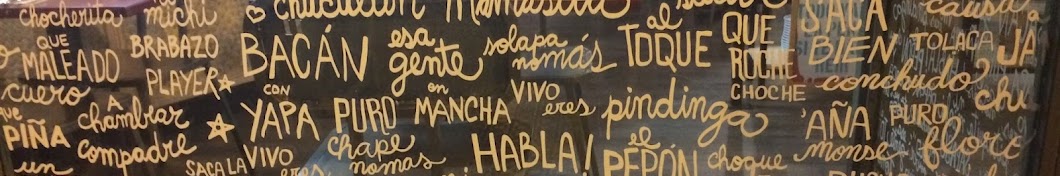 chocherita michi chuculun causa
QUE MALEADO BRABAZO BACÁN esa gente solapa nomás al TOQUE QUE ROCHE SACA BIEN TOLACA JA
cuero PLAYER CHOCHE conchudo chu
A chambiar CON YAPA PURO en MANCHA VIVO eres pindinga 'AÑA PURO
que PIÑA compadre VIVO chape nomas HABLA! el PEPÓN choque monse floro
un SACA LA eres